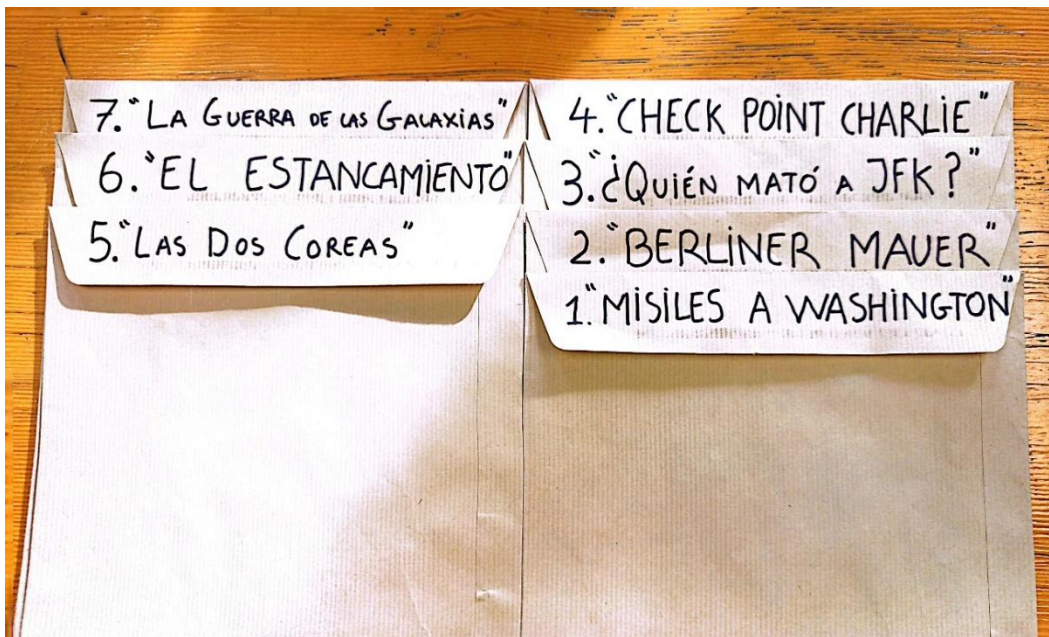 7. "La Guerra de las Galaxias"
6. "EL ESTANCAMIENTO"
5. "Las Dos Coreas"
4. "CHECK POINT CHARLIE"
3. "¿Quién mató a JFK?"
2. "BERLINER MAUER"
1. "MISILES A WASHINGTON"